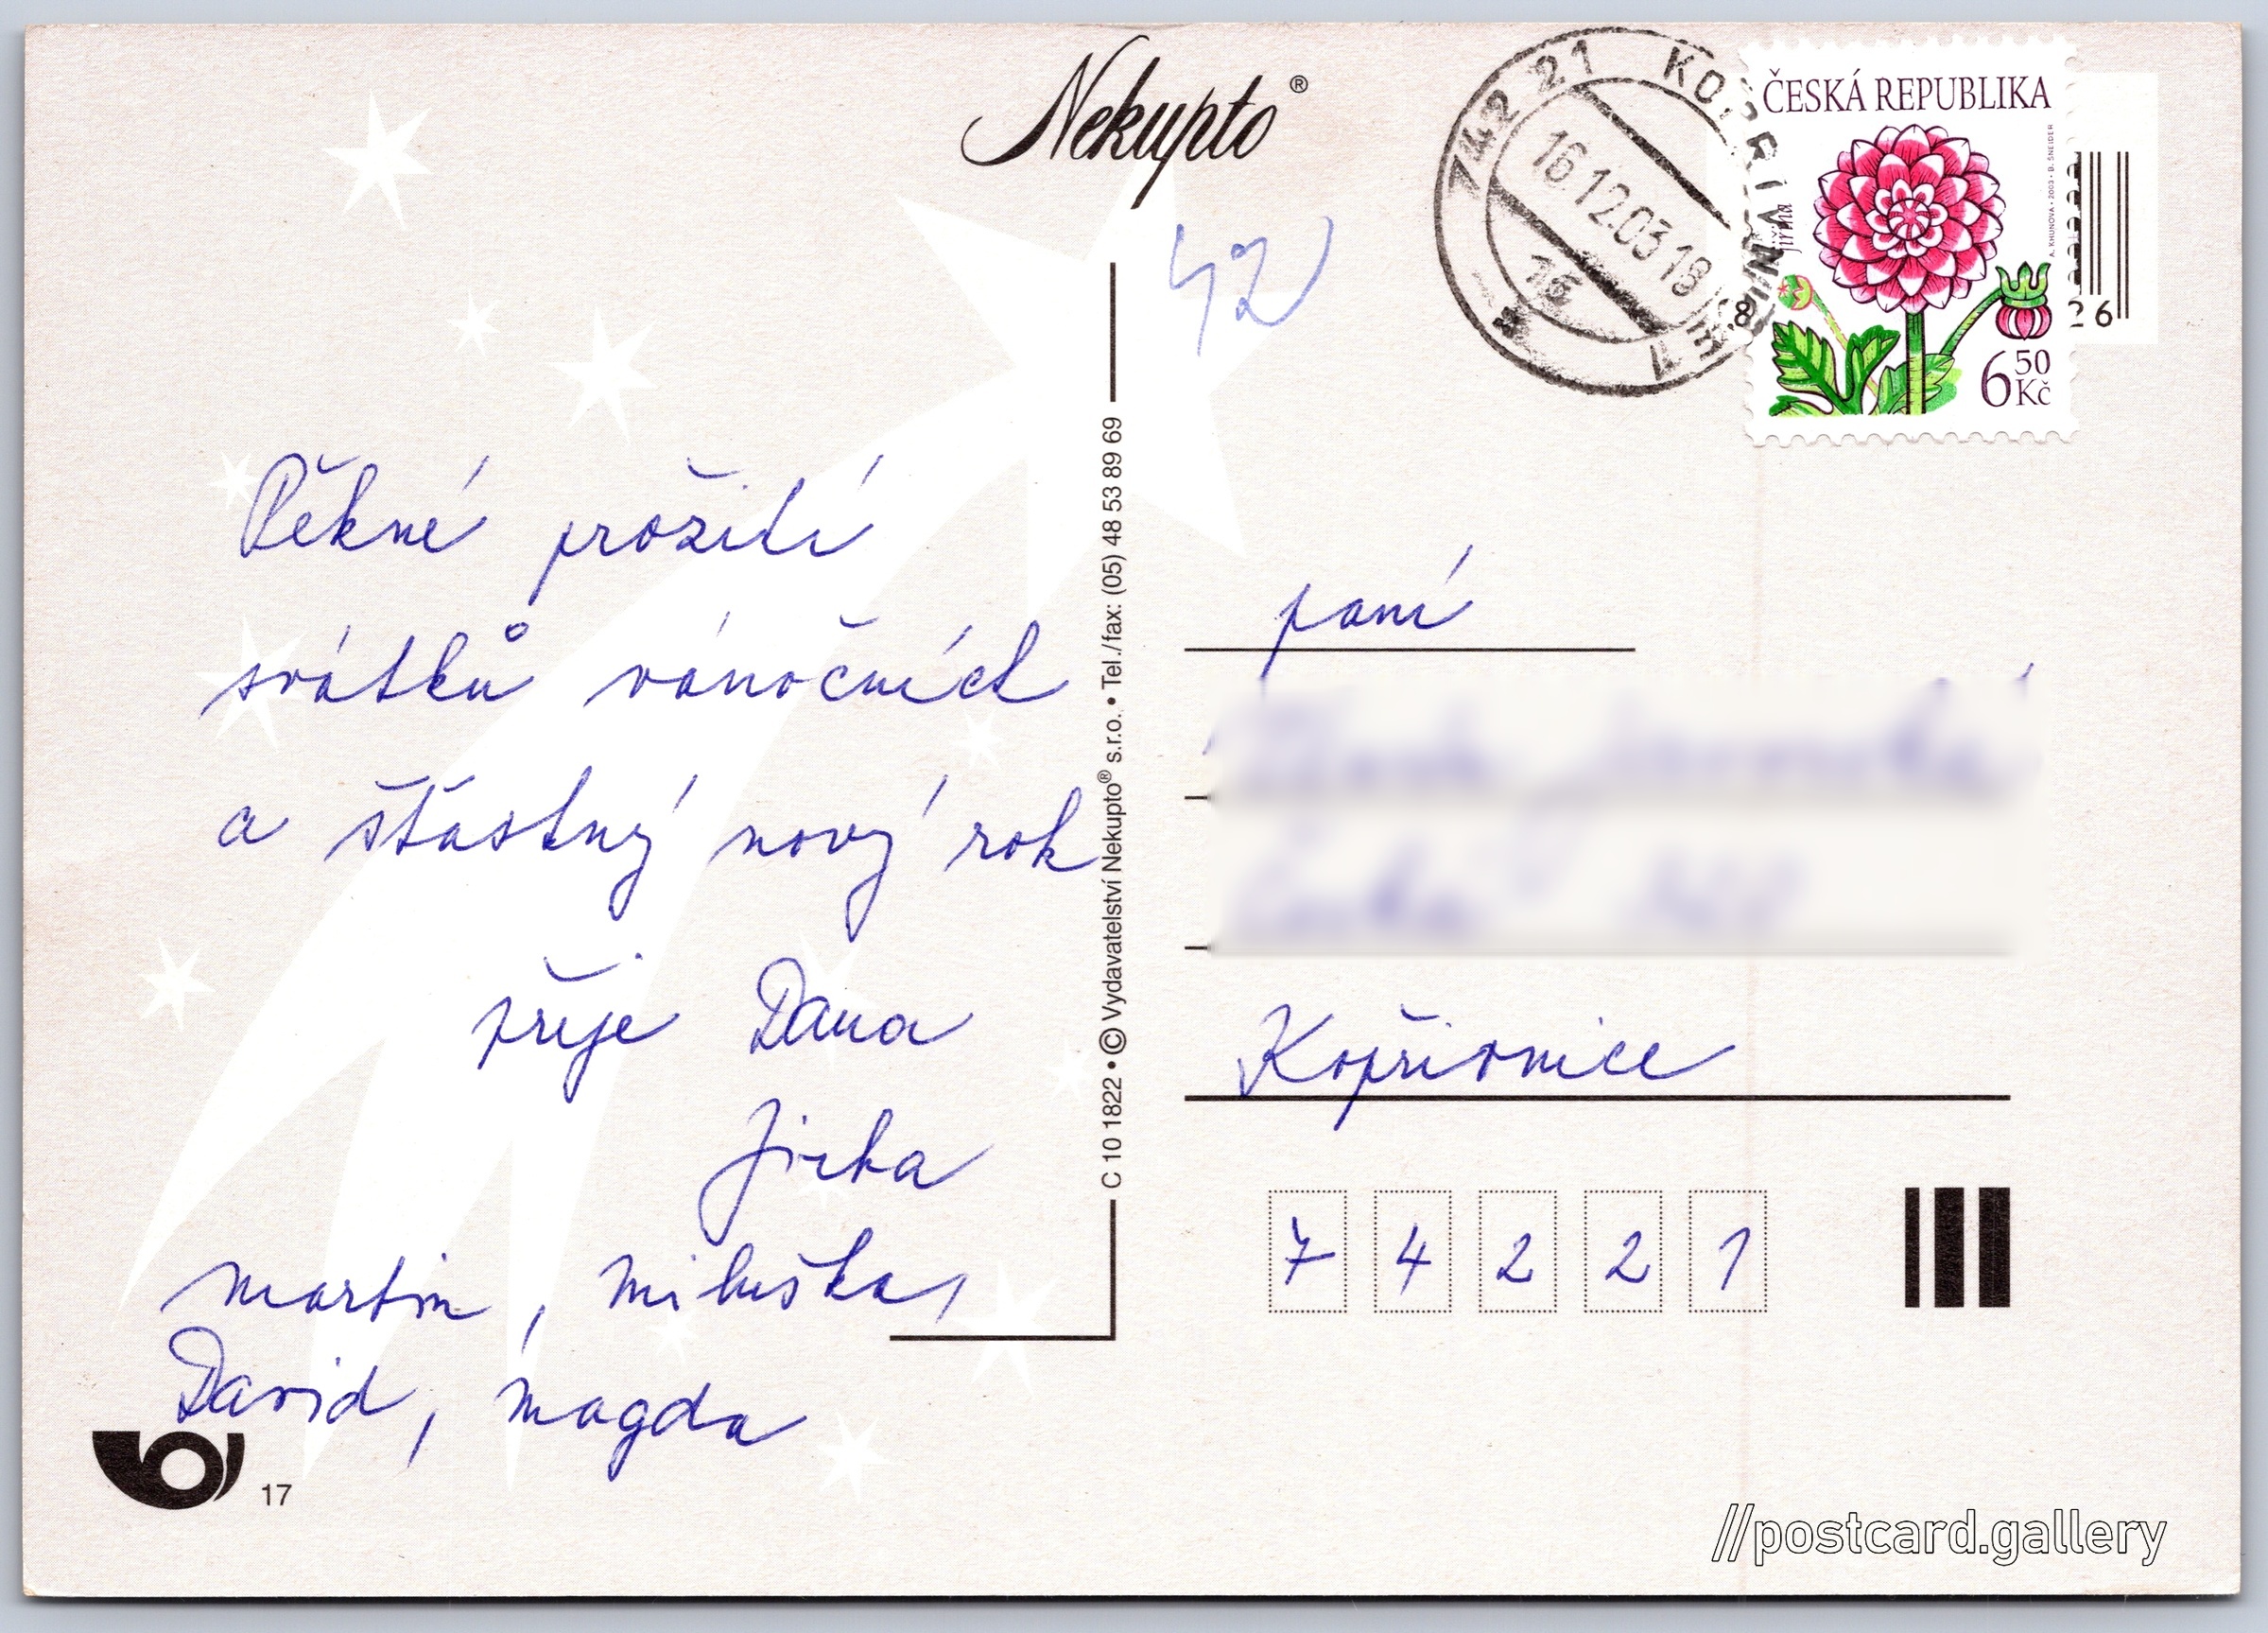 Nekupto®
42
742 21 KOPŘIVNICE 1
16.12.03 18
16
ČESKÁ REPUBLIKA
Jiřina
A. KHUNOVÁ • 2003 • B. ŠNEIDER
6 50 Kč
8
26
Pěkné prožití
svátků vánočních
a šťastný nový rok
přeje Dana
Jirka
Martin, Miluška,
David, Magda
17
C 10 1822 • © Vydavatelství Nekupto® s.r.o. • Tel./fax: (05) 48 53 89 69
paní
Kopřivnice
7 4 2 2 1
//postcard.gallery